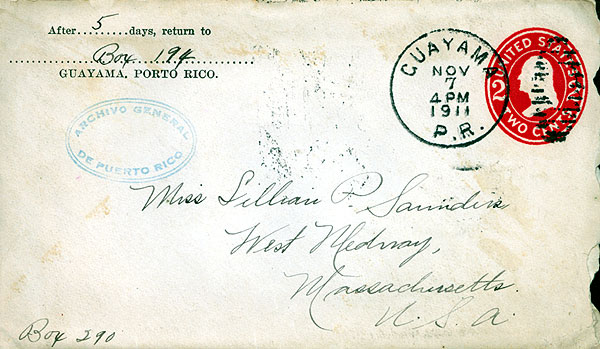 After 5 days, return to
Box 194
GUAYAMA, PORTO RICO.
GUAYAMA
NOV
7
4 PM
1911
P.R.
UNITED STATES
2 2
TWO CENTS
ARCHIVO GENERAL
DE PUERTO RICO
Miss Lillian P. Saunders
West Medway,
Massachusetts.
U.S.A.
Box 290